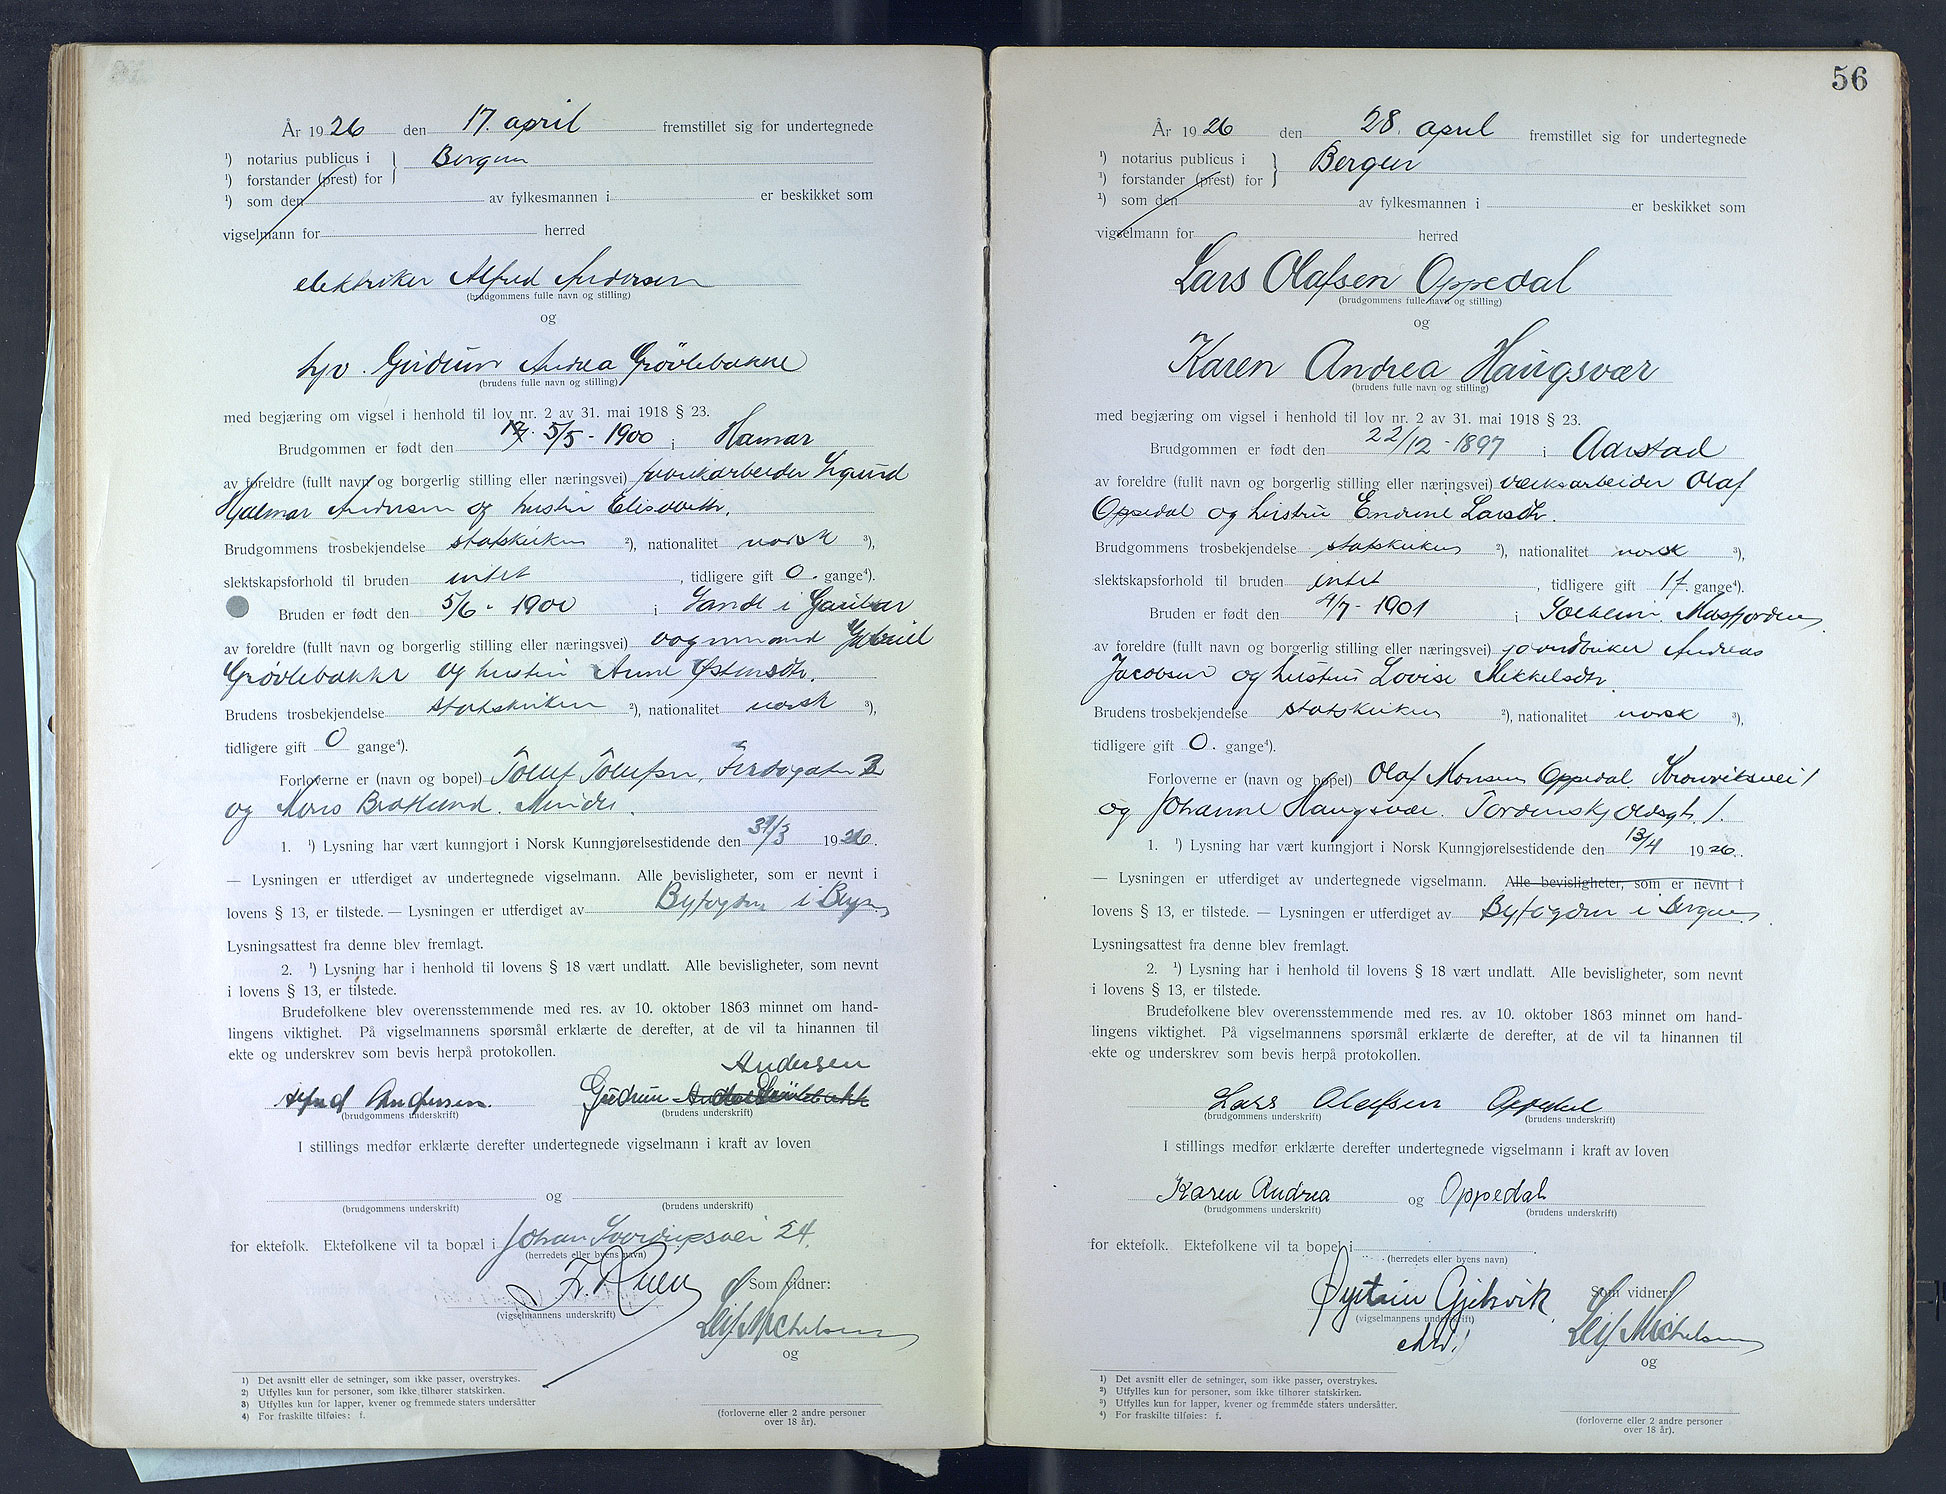 År 1926 den 17. april fremstillet sig for undertegnede
¹) notarius publicus i } Bergen
¹) forstander (prest) for
¹) som den av fylkesmannen i er beskikket som
vigselmann for herred
elektriker Alfred Andersen
(brudgommens fulle navn og stilling)
og
Gudrun Andrea Grövlebakke
(brudens fulle navn og stilling)
med begjæring om vigsel i henhold til lov nr. 2 av 31. mai 1918 § 23.
Brudgommen er født den 5/5 - 1900 i Hamar
av foreldre (fullt navn og borgerlig stilling eller næringsvei) fabrikarbeider Sigurd
Hjalmar Andersen og hustru Elisabeth.
Brudgommens trosbekjendelse statskirken ²), nationalitet norsk ³),
slektskapsforhold til bruden intet , tidligere gift 0. gange⁴).
Bruden er født den 5/6 - 1900 i Sandt i Gaular
av foreldre (fullt navn og borgerlig stilling eller næringsvei) vognmand Gabriel
Grövlebakke og hustru Anne Østensdtr.
Brudens trosbekjendelse statskirken ²), nationalitet norsk ³),
tidligere gift 0 gange⁴).
Forloverne er (navn og bopel) Tollef Tollefsen,
og Mons Minde.
1. ¹) Lysning har vært kunngjort i Norsk Kunngjørelsestidende den 31/3 1926.
— Lysningen er utferdiget av undertegnede vigselmann. Alle bevisligheter, som er nevnt i
lovens § 13, er tilstede. — Lysningen er utferdiget av Byfogden i Bergen
Lysningsattest fra denne blev fremlagt.
2. ¹) Lysning har i henhold til lovens § 18 vært undlatt. Alle bevisligheter, som nevnt
i lovens § 13, er tilstede.
Brudefolkene blev overensstemmende med res. av 10. oktober 1863 minnet om hand-
lingens viktighet. På vigselmannens spørsmål erklærte de derefter, at de vil ta hinannen til
ekte og underskrev som bevis herpå protokollen.
Andersen
Alfred Andersen. Gudrun Andrea Grövlebakk
(brudgommens underskrift) (brudens underskrift)
I stillings medfør erklærte derefter undertegnede vigselmann i kraft av loven
og
(brudgommens underskrift) (brudens underskrift)
for ektefolk. Ektefolkene vil ta bopæl i Johan Sverdrupsvei 24.
(herredets eller byens navn)
Som vidner:
(vigselmannens underskrift)
Leif Michelsen
og
1) Det avsnitt eller de setninger, som ikke passer, overstrykes.
2) Utfylles kun for personer, som ikke tilhører statskirken.
3) Utfylles kun for lapper, kvener og fremmede staters undersåtter
4) For fraskilte tilføies: f.
(forloverne eller 2 andre personer
over 18 år).
56
År 1926 den 28. april fremstillet sig for undertegnede
¹) notarius publicus i } Bergen
¹) forstander (prest) for
¹) som den av fylkesmannen i er beskikket som
vigselmann for herred
Lars Olafsen Oppedal
(brudgommens fulle navn og stilling)
og
Karen Andrea Haugsvær
(brudens fulle navn og stilling)
med begjæring om vigsel i henhold til lov nr. 2 av 31. mai 1918 § 23.
Brudgommen er født den 22/12 - 1897 i Aarstad
av foreldre (fullt navn og borgerlig stilling eller næringsvei) verksarbeider Olaf
Oppedal og hustru Endrine Larsdtr.
Brudgommens trosbekjendelse statskirken ²), nationalitet norsk ³),
slektskapsforhold til bruden intet , tidligere gift 1 f. gange⁴).
Bruden er født den 4/7 - 1901 i Solheim. Masfjorden
av foreldre (fullt navn og borgerlig stilling eller næringsvei) jordbruker Andreas
Jacobsen og hustru Lovise Mikkelsdtr.
Brudens trosbekjendelse statskirken ²), nationalitet norsk ³),
tidligere gift 0. gange⁴).
Forloverne er (navn og bopel) Olaf Monsen Oppedal. Kronviksvei 1
og Johanne Haugsvær. Tordenskjoldsgt. 1.
1. ¹) Lysning har vært kunngjort i Norsk Kunngjørelsestidende den 13/4 1926.
— Lysningen er utferdiget av undertegnede vigselmann. Alle bevisligheter, som er nevnt i
lovens § 13, er tilstede. — Lysningen er utferdiget av Byfogden i Bergen
Lysningsattest fra denne blev fremlagt.
2. ¹) Lysning har i henhold til lovens § 18 vært undlatt. Alle bevisligheter, som nevnt
i lovens § 13, er tilstede.
Brudefolkene blev overensstemmende med res. av 10. oktober 1863 minnet om hand-
lingens viktighet. På vigselmannens spørsmål erklærte de derefter, at de vil ta hinannen til
ekte og underskrev som bevis herpå protokollen.
Lars Olafsen Oppedal
(brudgommens underskrift) (brudens underskrift)
I stillings medfør erklærte derefter undertegnede vigselmann i kraft av loven
Karen Andrea og Oppedal
(brudgommens underskrift) (brudens underskrift)
for ektefolk. Ektefolkene vil ta bopel i
(herredets eller byens navn)
Øystein Gjelsvik Som vidner:
(vigselmannens underskrift)
Leif Michelsen
og
1) Det avsnitt eller de setninger, som ikke passer, overstrykes.
2) Utfylles kun for personer, som ikke tilhører statskirken.
3) Utfylles kun for lapper, kvener og fremmede staters undersåtter.
4) For fraskilte tilføies: f.
(forloverne eller 2 andre personer
over 18 år).